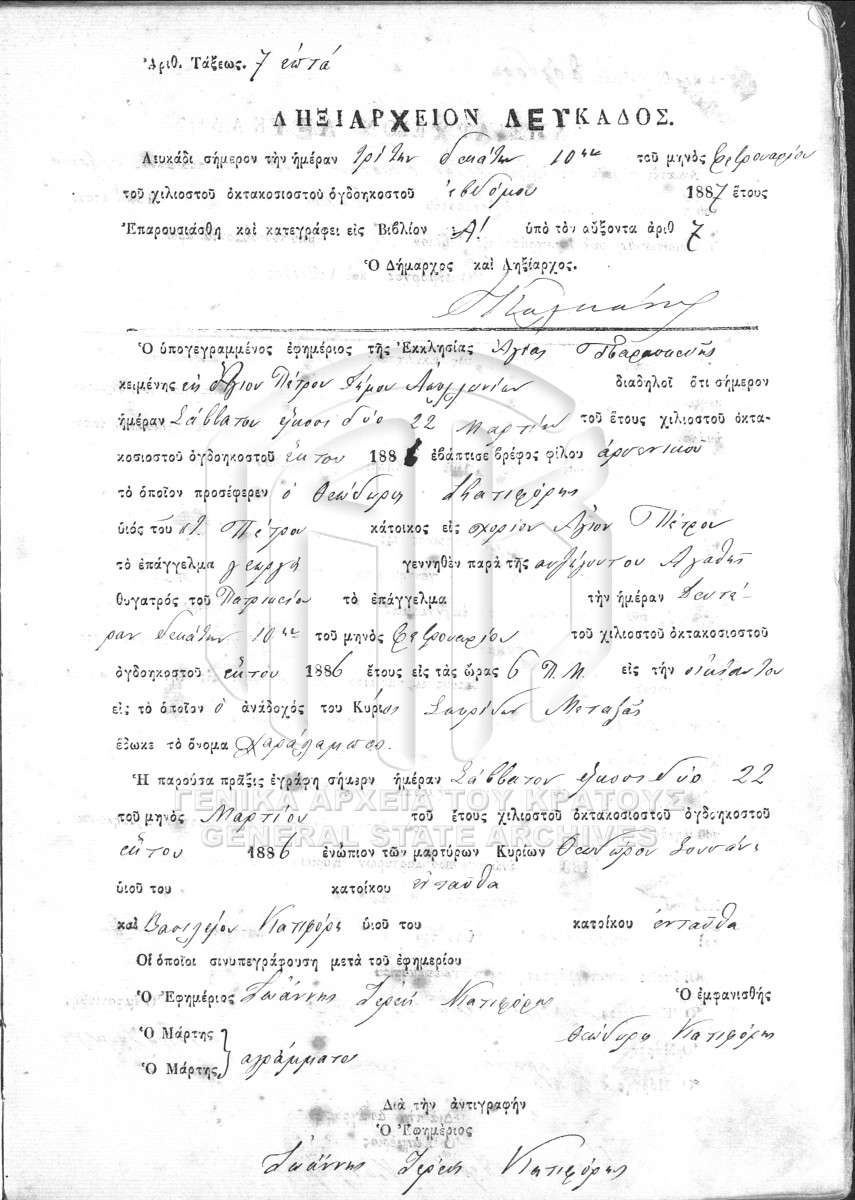 Ἀριθ. Τάξεως. 7 ἑπτά
ΛΗΞΙΑΡΧΕΙΟΝ ΛΕΥΚΑΔΟΣ.
Λευκάδι σήμερον τὴν ἡμέραν τρίτην δεκάτην 10ην τοῦ μηνὸς Φεβρουαρίου
τοῦ χιλιοστοῦ ὀκτακοσιοστοῦ ὀγδοηκοστοῦ ἑβδόμου 1887 ἔτους
Ἐπαρουσιάσθη καὶ κατεγράφει εἰς Βιβλίον Α! ὑπὸ τὸν αὔξοντα ἀριθ 7
Ὁ Δήμαρχος καὶ Ληξίαρχος.
Ὁ ὑπογεγραμμένος ἐφημέριος τῆς Ἐκκλησίας Ἁγίας Παρασκευῆς
κειμένης εἰς Ἅγιον Πέτρον Δήμου Ἀπολλωνίων διαδηλοῖ ὅτι σήμερον
ἡμέραν Σάββατον εἴκοσι δύο 22 Μαρτίου τοῦ ἔτους χιλιοστοῦ ὀκτα-
κοσιοστοῦ ὀγδοηκοστοῦ ἕκτου 1886 ἐβάπτισε βρέφος φίλου ἀρσενικοῦ
τὸ ὁποῖον προσέφερεν ὁ Θεόδωρος Κατιφόρης
υἱὸς τοῦ Πέτρου κάτοικος εἰς χορίον Ἅγιον Πέτρον
τὸ ἐπάγγελμα γεωργὸς γεννηθὲν παρὰ τῆς συζύγου του Ἀγαθῆς
θυγατρὸς τοῦ Πατρικίου τὸ ἐπάγγελμα τὴν ἡμέραν Δευτέ-
ραν δεκάτην 10ην τοῦ μηνὸς Φεβρουαρίου τοῦ χιλιοστοῦ ὀκτακοσιοστοῦ
ὀγδοηκοστοῦ ἕκτου 1886 ἔτους εἰς τὰς ὥρας 6 Π.Μ. εἰς τὴν οἰκίαν του
εἰς τὸ ὁποῖον ὁ ἀνάδοχός του Κύριος Σπυρίδων Μεταξᾶς
ἔδωκε τὸ ὄνομα Χαράλαμπος.
Ἡ παροῦσα πρᾶξις ἐγράφη σήμερν ἡμέραν Σάββατον εἴκοσι δύο 22
τοῦ μηνὸς Μαρτίου τοῦ ἔτους χιλιοστοῦ ὀκτακοσιοστοῦ ὀγδοηκοστοῦ
ΓΕΝΙΚΑ ΑΡΧΕΙΑ ΤΟΥ ΚΡΑΤΟΥΣ
GENERAL STATE ARCHIVES
ἕκτου 1886 ἐνώπιον τῶν μαρτύρων Κυρίων Θεόδωρον
υἱοῦ του κατοίκου ἐνταῦθα
καὶ Βασιλείου Κατιφόρη υἱοῦ του κατοίκου ἐνταῦθα
Οἱ ὁποῖοι σινυπεγράφουση μετὰ τοῦ ἐφημερίου
Ὁ Ἐφημέριος Ἰωάννης Ἱερεὺς Κατιφόρης Ὁ ἐμφανισθὴς
Ὁ Μάρτης Θεόδωρος Κατιφόρης
Ὁ Μάρτης ἀγράμματοι
Διὰ τὴν ἀντιγραφήν
Ὁ Ἐφημέριος
Ἰωάννης Ἱερεὺς Κατιφόρης